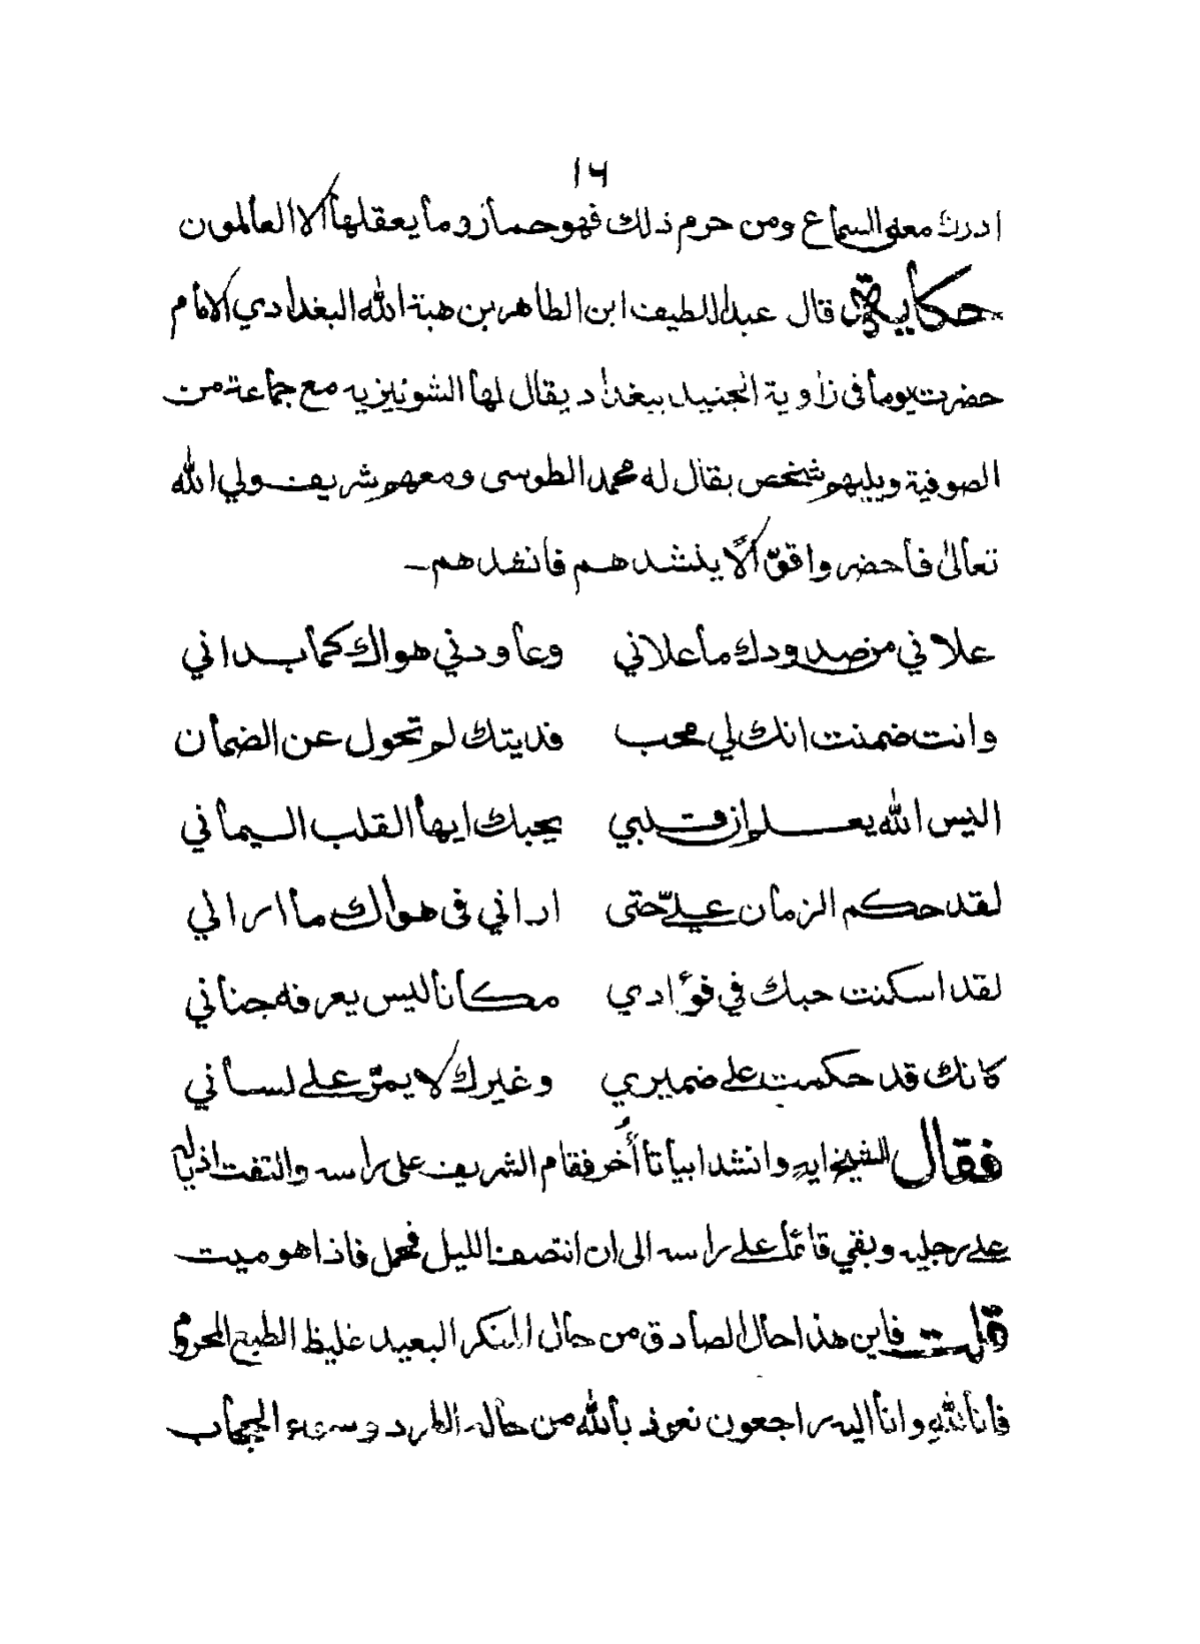 ١٦
ادرك معنى السماع ومن حرم ذلك فهو حمار وما يعقلها الا العالمون
حكاية قال عبد اللطيف ابن الطاهر بن هبة الله البغدادي الامام
حضرت يوما في زاوية الجنيد ببغداد يقال لها الشونيزيه مع جماعة من
الصوفية ويليهم شخص يقال له محمد الطوسى ومعهم شريف ولي الله
تعالى فاحضروا قوّالًا ينشدهم فانشدهم
علاني من صدودك ما علاني وعاودني هواك كما بداني
وانت ضمنت انك لي محب فديتك لم تحول عن الضمان
اليس الله يعلم ان قلبي يحبك ايها القلب اليماني
لقد حكم الزمان عليّ حتى اراني في هواك ما اراني
لقد اسكنت حبك في فؤادي مكانا ليس يعرفه جناني
كانك قد حكمت على ضميري وغيرك لا يمرّ على لساني
فقال الشيخ ايهٍ وانشد ابياتا أُخر فقام الشريف على راسه والتفت اذياله
على رجليه وبقي قائما على راسه الى ان انتصف الليل فحمل فاذا هو ميت
قلت فاين هذا حال الصادق من حال المنكر البعيد غليظ الطبع المحروم
فانا لله وانا اليه راجعون نعوذ بالله من حاله الطرد وسوء الحجاب